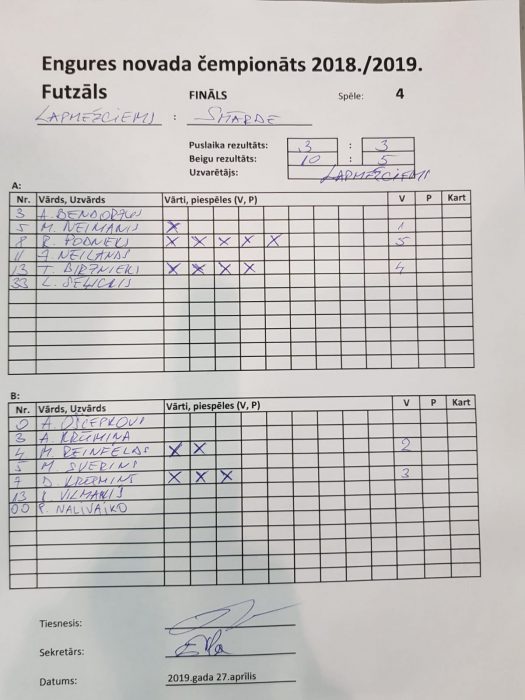 Engures novada čempionāts 2018./2019.
Futzāls FINĀLS Spēle: 4
LAPMEŽCIEMS : SMĀRDE
Puslaika rezultāts: 3 : 3
Beigu rezultāts: 10 : 5
Uzvarētājs: LAPMEŽCIEMS
A:
Nr. Vārds, Uzvārds Vārti, piespēles (V, P) V P Kart
3 A.
5 M. NEIMANIS X 1
8 R. PODNEKS X X X X X 5
11 J. NEILANDS
13 T. BIRZNIEKS X X X X 4
33 L.
B:
Nr. Vārds, Uzvārds Vārti, piespēles (V, P) V P Kart
0 A. OŠČEPKOVS
3 A. KRŪMIŅA
4 M. REINFELDS X X 2
5 M. SVERINS
7 D. KRŪMIŅŠ X X X 3
13 VILMANIS
00 R. NALIVAIKO
Tiesnesis:
Sekretārs:
Datums: 2019.gada 27.aprīlis